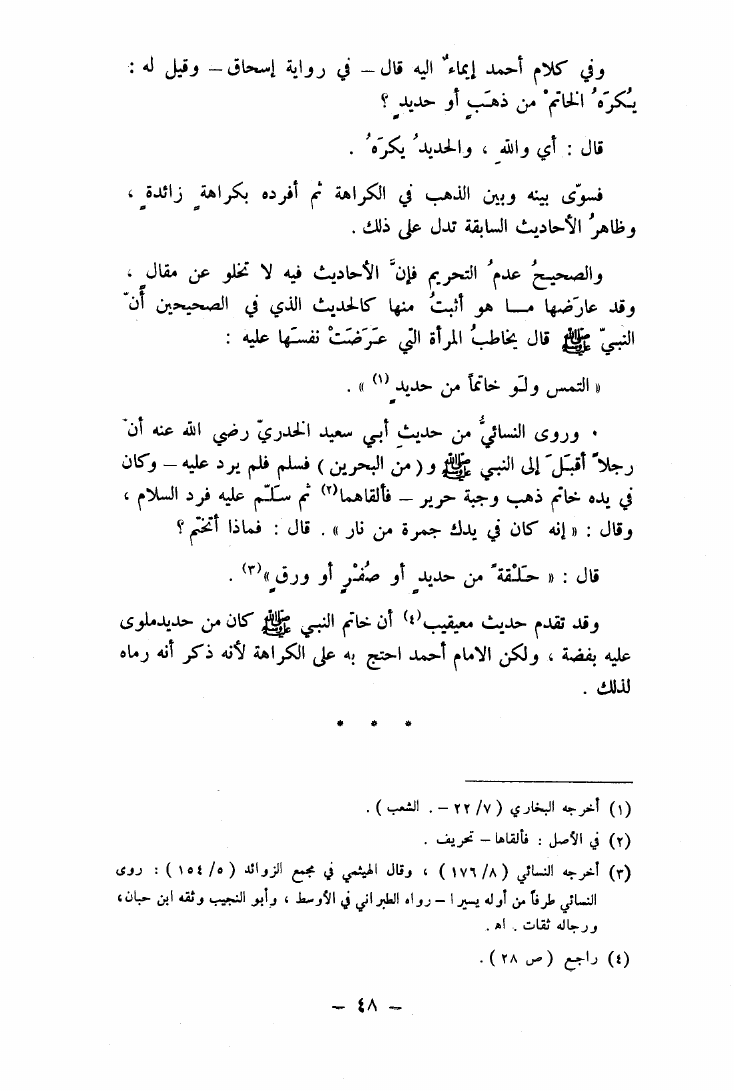 وفي كلام أحمد إيماءٌ اليه قال – في رواية إسحاق – وقيل له :
يُكرَهُ الخاتمْ من ذهَبٍ أو حديدٍ ؟
قال : أي واللهِ ، والحديدُ يكرَهُ .
فسوّى بينه وبين الذهب في الكراهة ثم أفرده بكراهةٍ زائدةٍ ،
وظاهرُ الأحاديث السابقة تدل على ذلك .
والصحيحُ عدمُ التحريم فإنَّ الأحاديث فيه لا تخلو عن مقالٍ ،
وقد عارَضها مـا هو أثبتُ منها كالحديث الذي في الصحيحين أنّ
النبيّ ﷺ قال يخاطبُ المرأة التي عَرَضَتْ نفسَها عليه :
« التمس ولَو خاتماً من حديدٍ (١) » .
· وروى النسائيُّ من حديثِ أبي سعيد الخدريّ رضي الله عنه أنّ
رجلاً أقبَلَ إلى النبي ﷺ و ( من البحرين ) فسلم فلم يرد عليه – وكان
في يده خاتم ذهب وجبة حرير – فألقاهما(٢) ثم سَلّم عليه فرد السلام ،
وقال : « إنه كان في يدك جمرة من نار » . قال : فماذا أتختّم ؟
قال : « حَلْقةً من حديدٍ أو صُفْرٍ أو ورقٍ »(٣) .
وقد تقدم حديث معيقيب(٤) أن خاتم النبي ﷺ كان من حديدملوى
عليه بفضة ، ولكن الامام أحمد احتج به على الكراهة لأنه ذكر أنه رماه
لذلك .
* * *
(١) أخرجه البخاري ( ٧/ ٢٢ – . الشعب ) .
(٢) في الأصل : فألقاها – تحريف .
(٣) أخرجه النسائي ( ٨/ ١٧٦ ) ، وقال الهيثمي في مجمع الزوائد ( ٥/ ١٥٤ ) : روى
النسائي طرفاً من أوله يسيرا – رواه الطبراني في الأوسط ، وأبو النجيب وثقه ابن حبان،
ورجاله ثقات . اه .
(٤) راجع ( ص ٢٨ ) .
– ٤٨ –